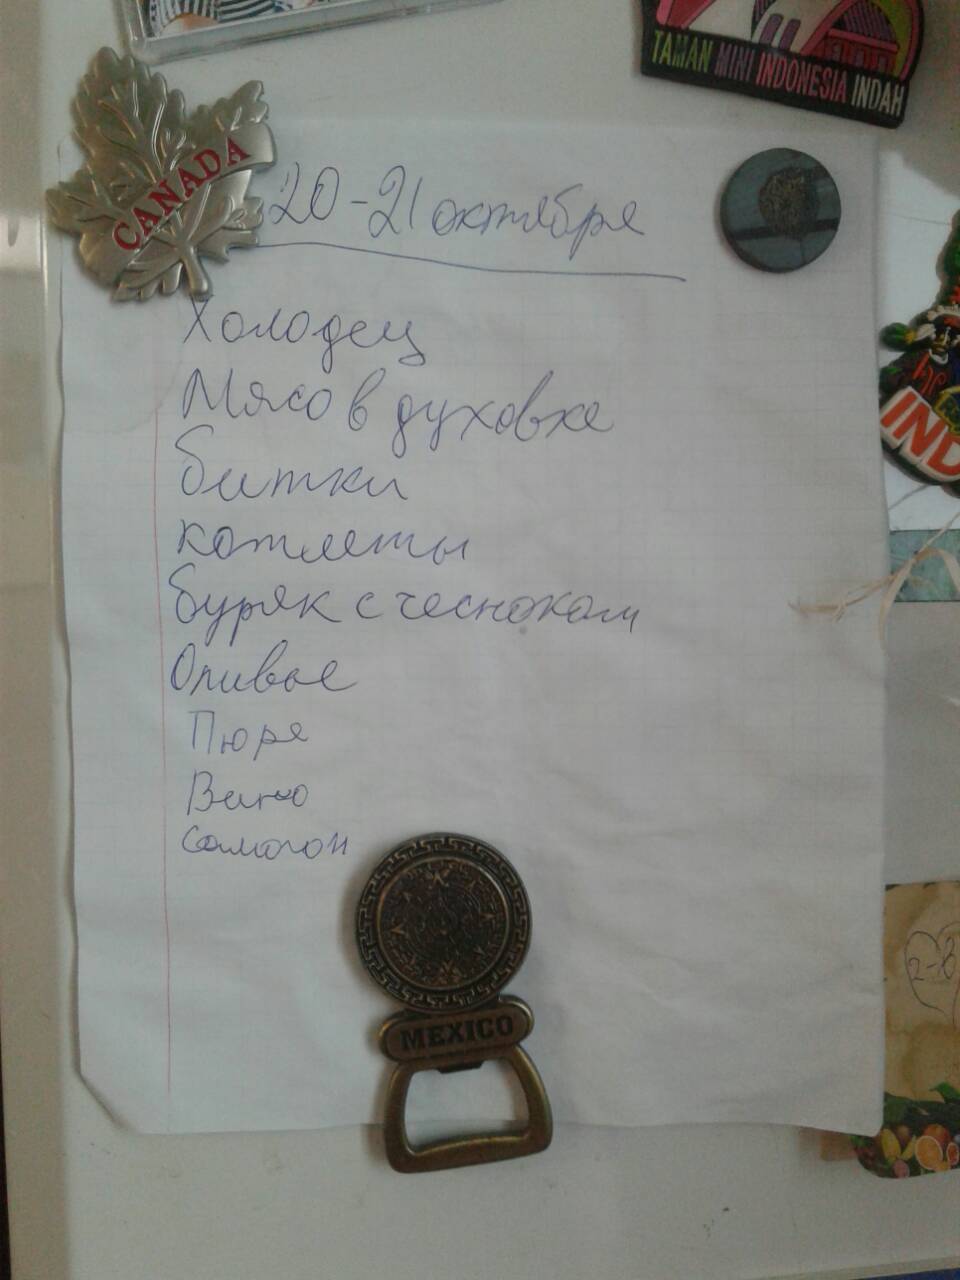 TAMAN MINI INDONESIA INDAH
CANADA
20-21 октября
Холодец
Мясо в духовке
битки
котлеты
буряк с чесноком
Оливье
Пюре
Вино
Самогон
IND
MEXICO